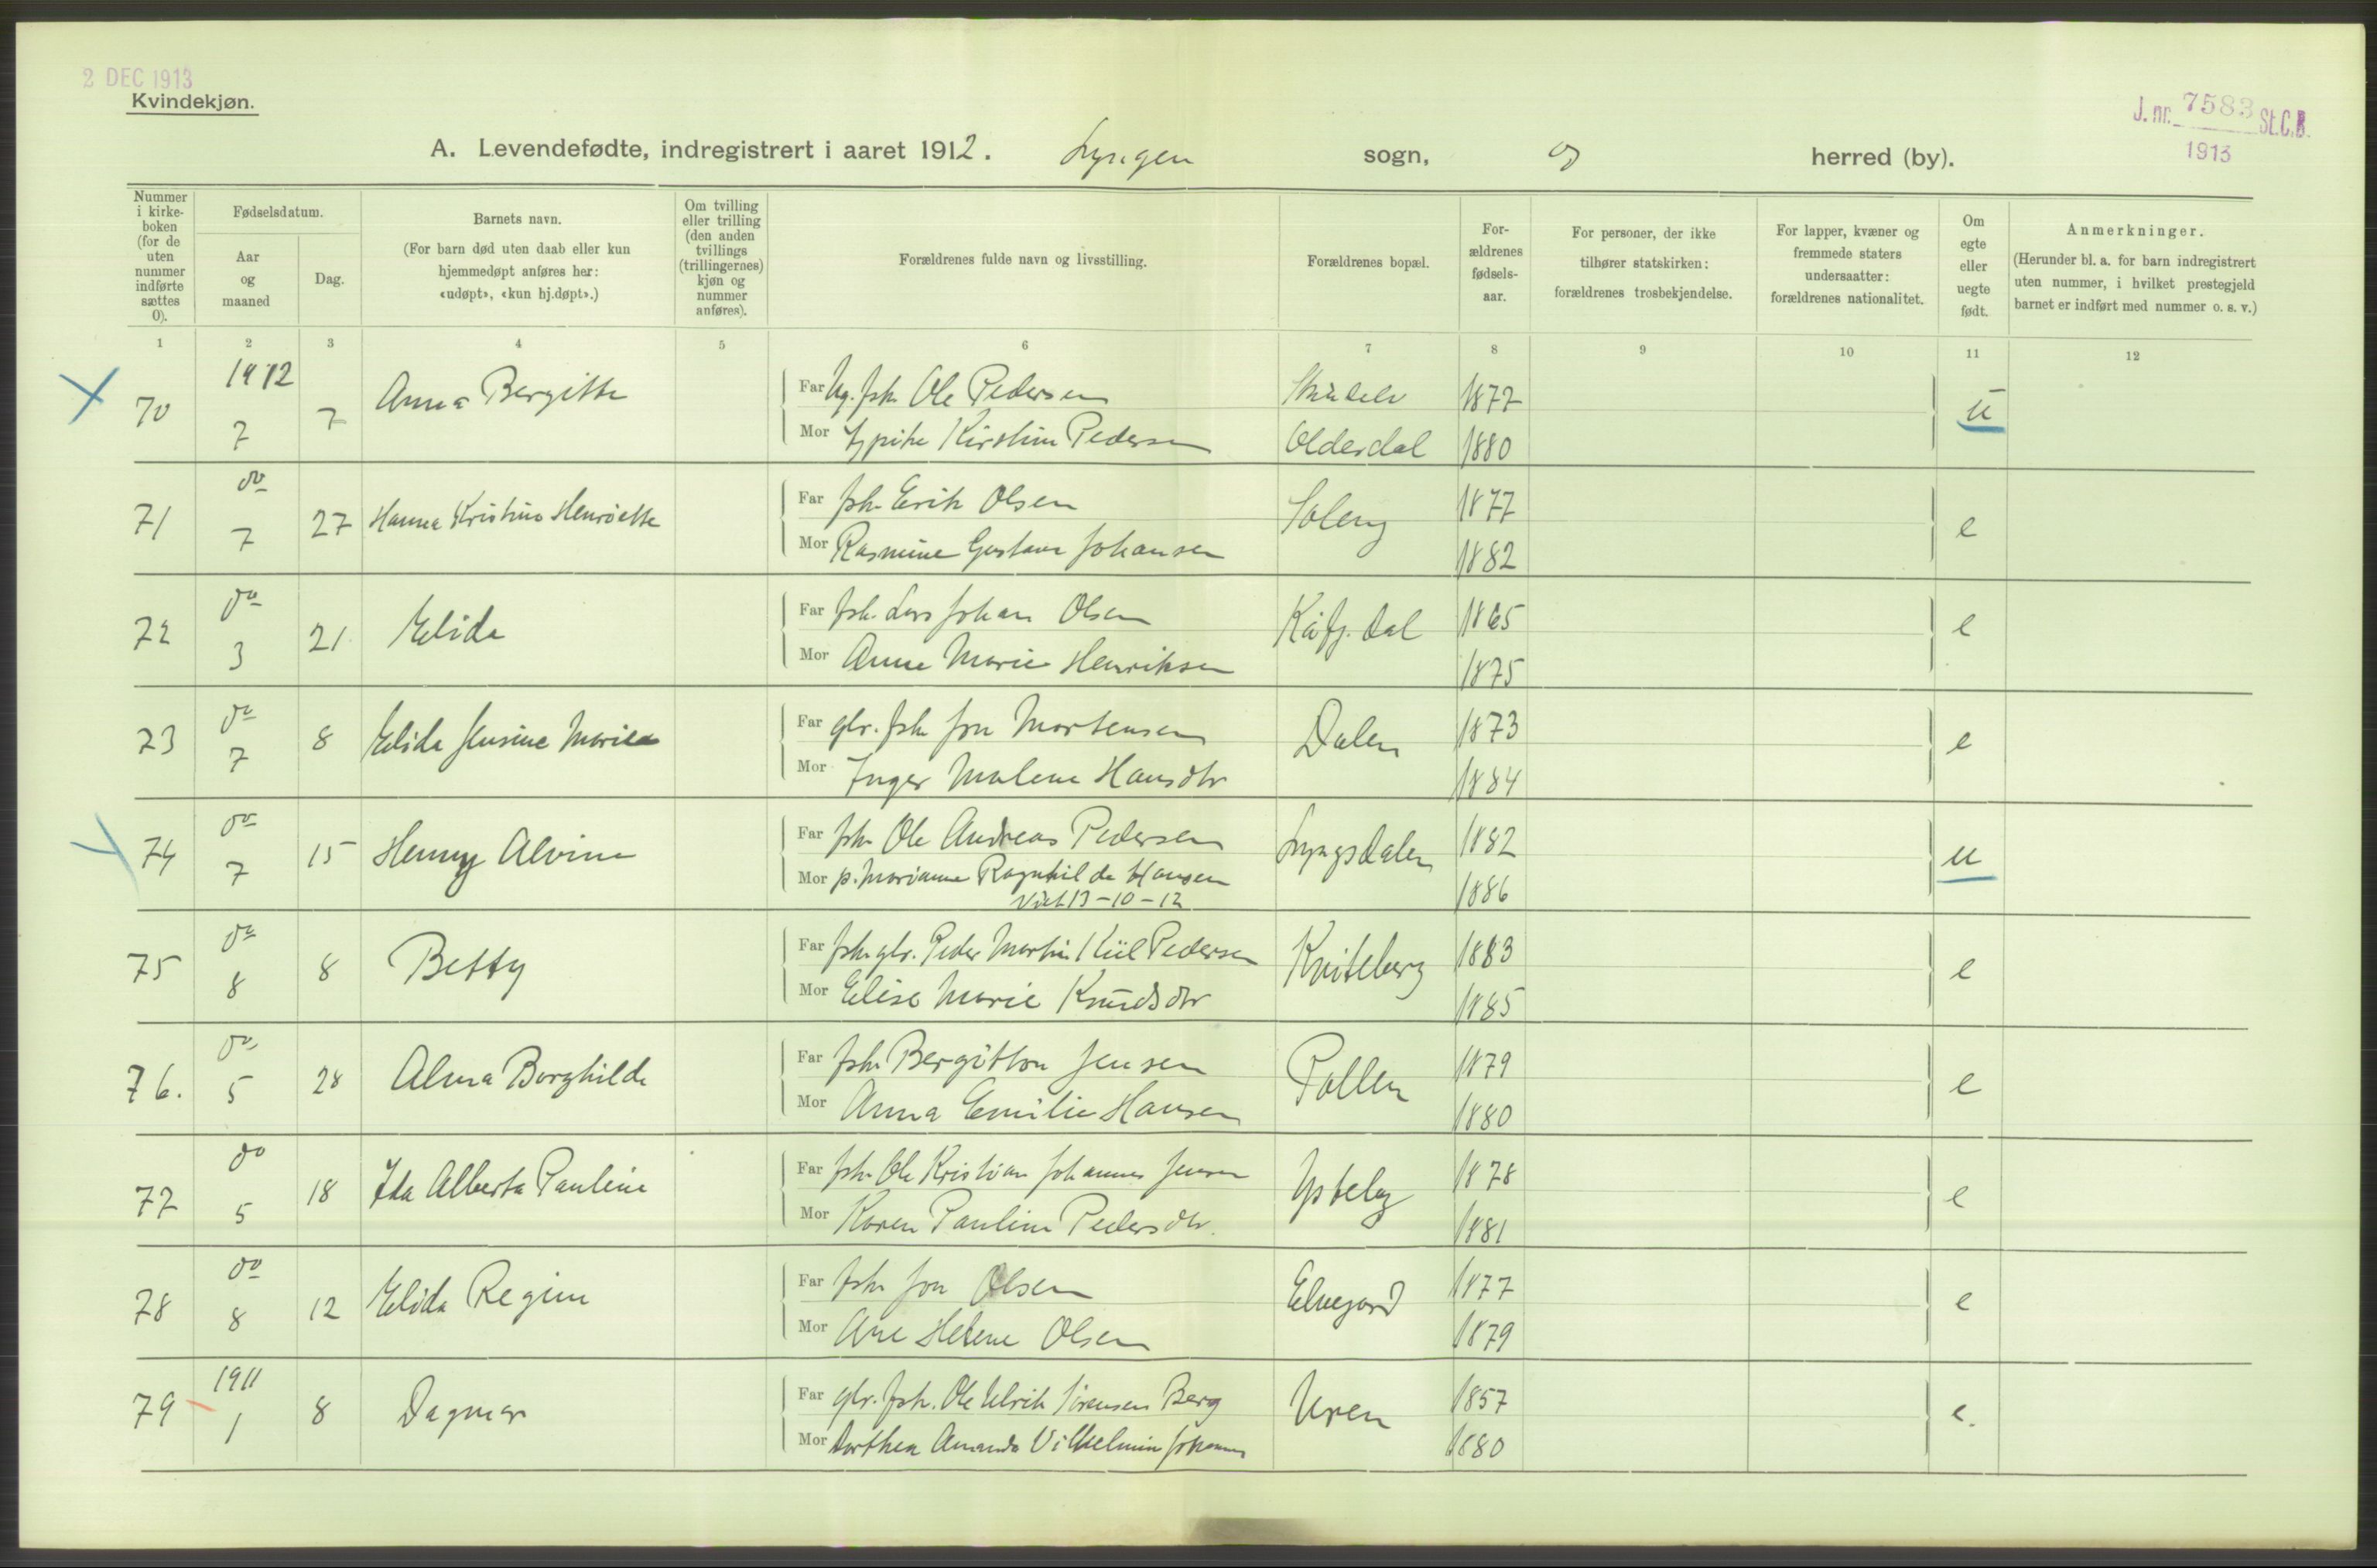 2 DEC 1913
Kvindekjøn.
J. nr. 7583 St.C.B.
1913
A. Levendefødte, indregistrert i aaret 1912. Lyngen sogn, og herred (by).
Nummer i kirke-boken (for de uten nummer indførte sættes 0).
Fødselsdatum.
Aar og maaned
Dag.
Barnets navn.
(For barn død uten daab eller kun hjemmedøpt anføres her: «udøpt», «kun hj.døpt».)
Om tvilling eller trilling (den anden tvillings (trillingernes) kjøn og nummer anføres).
Forældrenes fulde navn og livsstilling.
Forældrenes bopæl.
For-ældrenes fødsels-aar.
For personer, der ikke tilhører statskirken: forældrenes trosbekjendelse.
For lapper, kvæner og fremmede staters undersaatter: forældrenes nationalitet.
Om egte eller uegte født.
Anmerkninger.
(Herunder bl. a. for barn indregistrert uten nummer, i hvilket prestegjeld barnet er indført med nummer o. s. v.)
1 2 3 4 5 6 7 8 9 10 11 12
70 1912 7 7 Anna Bergitte Far Ug. fsk. Ole Pedersen 1872 u
Mor Kirstine Pedersen Olderdal 1880
71 do 7 27 Hanna Kristine Henriette Far fsk. Erik Olsen Soleng 1877 e
Mor Rasmine Gustava Johansen 1882
72 do 3 21 Elida Far fsk. Lars Johan Olsen Kåfj. dal 1865 e
Mor Anne Marie Henriksen 1875
73 do 7 8 Elida Jensine Marie Far gbr. fsk. Jon Mortensen Dalen 1873 e
Mor Inger Malene Hansdtr 1884
74 do 7 15 Henny Alvine Far fsk. Ole Andreas Pedersen Lyngsdalen 1882 u
Mor p. Marianne Ragnhilda Hansen 1886
Viet 13-10-12
75 do 8 8 Betty Far fsk. gbr. Peder Martin Kiil Pedersen Kviteberg 1883 e
Mor Elise Marie Knudsdtr 1885
76. do 5 28 Alma Borghilda Far fsk. Bergitton Jensen Pollen 1879 e
Mor Anna Emilie Hansen 1880
77 do 5 18 Ida Alberta Pauline Far fsk. Ole Kristian Johannes Jensen Ysteby 1878 e
Mor Karen Pauline Pedersdtr. 1881
78 do 8 12 Elida Regine Far fsk. Jon Olsen Elvegard 1877 e
Mor Ane Helene Olsen 1879
79 1911 1 8 Dagmar Far gbr. fsk. Ole Ulrik Sørensen Berg Uren 1857 e.
Mor Dorthea Amanda Vilhelmine 1880